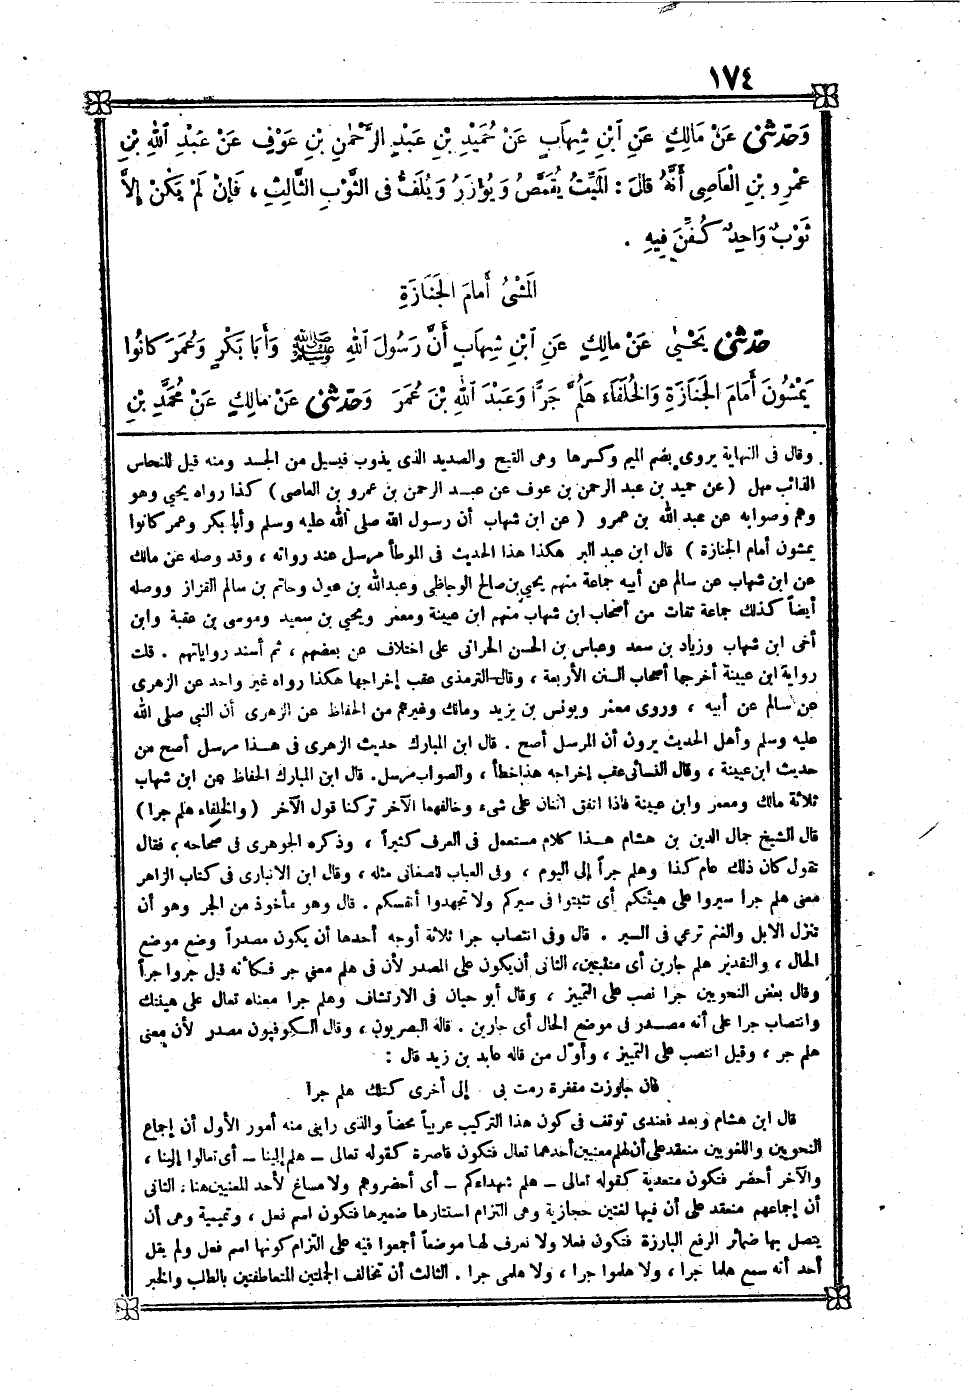 ١٧٤
وَحَدَّثَنِي عَنْ مَالِكٍ عَنِ ابْنِ شِهَابٍ عَنْ حُمَيْدِ بْنِ عَبْدِ الرَّحْمٰنِ بْنِ عَوْفٍ عَنْ عَبْدِ اللهِ بْنِ
عَمْرِو بْنِ الْعَاصِى أَنَّهُ قَالَ : الْمَيِّتُ يُقَمَّصُ وَيُؤَزَّرُ وَيُلَفُّ فِى الثَّوْبِ الثَّالِثِ ، فَإِنْ لَمْ يَكُنْ إِلاَّ
ثَوْبٌ وَاحِدٌ كُفِّنَ فِيهِ .
الْمَشْىُ أَمَامَ الْجَنَازَةِ
حَدَّثَنِي يَحْيٰى عَنْ مَالِكٍ عَنِ ابْنِ شِهَابٍ أَنَّ رَسُولَ اللهِ ﷺ وَأَبَا بَكْرٍ وَعُمَرَ كَانُوا
يَمْشُونَ أَمَامَ الْجَنَازَةِ وَالْخُلَفَاءَ هَلُمَّ جَرًّا وَعَبْدَ اللهِ بْنَ عُمَرَ وَحَدَّثَنِي عَنْ مَالِكٍ عَنْ مُحَمَّدِ بْنِ
وقال فى النهاية يروى بضم الميم وكسرها وهى القيح والصديد الذى يذوب فيسيل من الجسد ومنه قيل للنحاس
الذائب مهل (عن حميد بن عبد الرحمن بن عوف عن عبد الرحمن بن عمرو بن العاصى) كذا رواه يحيي وهو
وهم وصوابه عن عبد الله بن عمرو ( عن ابن شهاب أن رسول الله صلى الله عليه وسلم وأبا بكر وعمر كانوا
يمشون أمام الجنازة ) قال ابن عبد البر هكذا هذا الحديث فى الموطأ مرسل عند رواته ، وقد وصله عن مالك
عن ابن شهاب عن سالم عن أبيه جماعة منهم يحيي بن صالح الوحاظى وعبدالله بن عون وحاتم بن سالم القزاز ووصله
أيضاً كذلك جماعة ثقات من أصحاب ابن شهاب منهم ابن عيينة ومعمر ويحيى بن سعيد وموسى بن عقبة وابن
أخى ابن شهاب وزياد بن سعد وعباس بن الحسن الحرانى على اختلاف عن بعضهم ، ثم أسند رواياتهم . قلت
رواية ابن عيينة أخرجها أصحاب السنن الأربعة ، وقال الترمذى عقب إخراجها هكذا رواه غير واحد عن الزهرى
عن سالم عن أبيه ، وروى معمر ويونس بن يزيد ومالك وغيرهم من الحفاظ عن الزهرى أن النبي صلى الله
عليه وسلم وأهل الحديث يرون أن المرسل أصح . قال ابن المبارك حديث الزهرى فى هذا مرسل أصح من
حديث ابن عيينة ، وقال النسائى عقب إخراجه هذا خطأ ، والصواب مرسل. قال ابن المبارك الحفاظ عن ابن شهاب
ثلاثة مالك ومعمر وابن عيينة فاذا اتفق اثنان على شىء وخالفهما الآخر تركنا قول الآخر ( والخلفاء هلم جرا )
قال الشيخ جمال الدين بن هشام هذا كلام مستعمل فى العرف كثيراً ، وذكره الجوهرى فى صحاحه ، فقال
تقول كان ذلك عام كذا وهلم جراً إلى اليوم ، وفى العباب للصغانى مثله ، وقال ابن الانبارى فى كتاب الزاهر
معنى هلم جرا سيروا على هينتكم أى تثبتوا فى سيركم ولا تجهدوا أنفسكم . قال وهو مأخوذ من الجر وهو أن
تنزل الابل والغنم ترعي فى السير . قال وفى انتصاب جرا ثلاثة أوجه أحدها أن يكون مصدراً وضع موضع
الحال ، والتقدير هلم جارين أى متثبتين، الثانى أن يكون على المصدر لأن فى هلم معني جر فكأنه قيل جروا جراً
وقال بعض النحويين جرا نصب على التمييز ، وقال أبو حيان فى الارتشاف وهلم جرا معناه تعال على هينتك
وانتصاب جرا على أنه مصدر فى موضع الحال أى جارين . قاله البصريون ، وقال الكوفيون مصدر لأن معنى
هلم جر ، وقيل انتصب على التمييز ، وأوّل من قاله عابد بن زيد قال :
فان جاوزت مقفرة رمت بى إلى أخرى كتلك هلم جرا
قال ابن هشام وبعد فعندى توقف فى كون هذا التركيب عربياً محضاً والذى رابنى منه أمور الأول أن إجماع
النحويين واللغويين منعقد على أن لهلم معنيين أحدهما تعال فتكون قاصرة كقوله تعالى ـ هلم إلينا ـ أى تعالوا إلينا ،
والآخر أحضر فتكون متعدية كقوله تعالى ـ هلم شهداءكم ـ أى أحضروهم ولا مساغ لأحد المعنيين هنا ، الثانى
أن إجماعهم منعقد على أن فيها لغتين حجازية وهى التزام استتارها ضميرها فتكون اسم فعل ، وتميمية وهى أن
يتصل بها ضمائر الرفع البارزة فتكون فعلا ولا نعرف لها موضعاً أجمعوا فيه على التزام كونها اسم فعل ولم يقل
أحد أنه سمع هلما جرا ، ولا هلموا جرا ، ولا هلمى جرا . الثالث أن تخالف الجملتين المتعاطفتين بالطلب والخبر